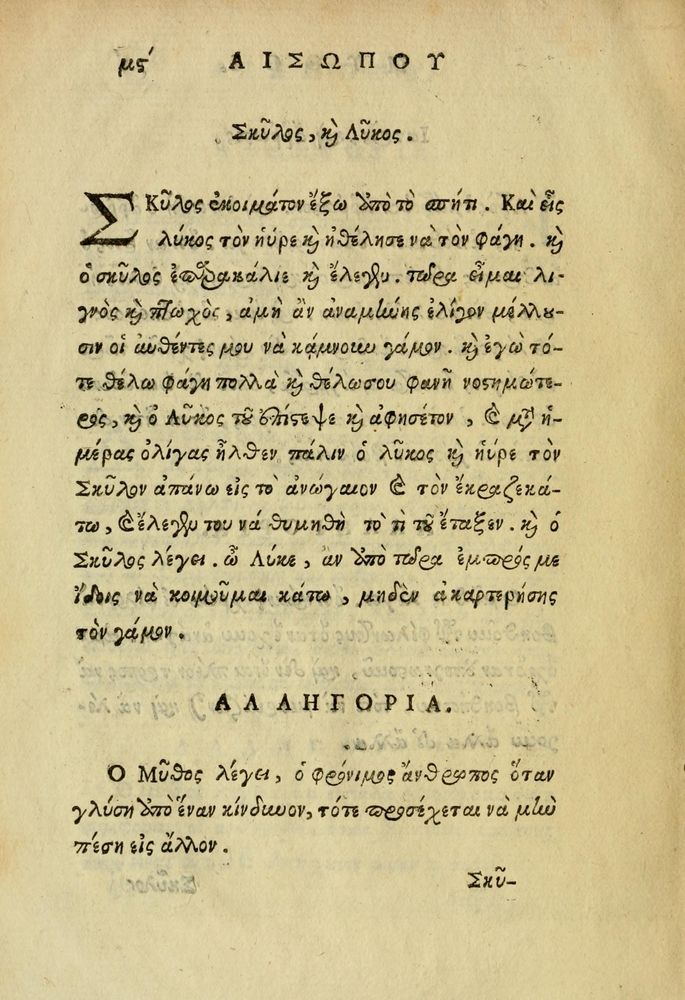 μϛ´ ΑΙΣΩΠΟΥ
Σκῦλος, κὶ Λῦκος.
ΣΚῦλος ἐκοιμάτον ἔξω ἀπὸ τὸ σπήτι. Καὶ εἷς
λύκος τὸν ηὗρε κὶ ἠθέλησε νὰ τὸν φάγη. κὶ
ὁ σκῦλος ἐπαρακάλιε κὶ ἔλεγεν. τώρα εἶμαι λι-
γνὸς κὶ πτωχὸς, ἀμὴ ἂν ἀναμένης ὀλίγον μέλλου-
σιν οἱ ἀυθέντες μου νὰ κάμνουν γάμον. κὶ ἐγὼ τό-
τε θέλω φάγη πολλὰ κὶ θέλω σου φανῆ νοστημώτε-
ρος, κὶ ὁ Λῦκος τοῦ ἐπίστεψε κὶ ἀφησέτον, Ȣ μετὰ ἡ-
μέρας ὀλίγας ἦλθεν πάλιν ὁ λῦκος κὶ ηὗρε τὸν
Σκῦλον ἀπάνω εἰς τὸ ἀνώγαιον ϗ τὸν ἐκραζεκά-
τω, ϗ ἔλεγεν του νά θυμηθῆ τὸ τὶ τοῦ ἔταξεν. κὶ ὁ
Σκῦλος λέγει. ὦ Λύκε, ἂν ἀπὸ τώρα ἐμπρός με
ἴδοις νὰ κοιμοῦμαι κάτω, μηδὲν ἀκαρτερήσης
τὸν γάμον.
ΑΛΛΗΓΟΡΙΑ.
Ὁ Μῦθος λέγει, ὁ φρόνιμος ἄνθρωπος ὅταν
γλύση ἀπὸ ἕναν κίνδυνον, τότε προσέχεται νὰ μὴν
πέση εἰς ἄλλον.
Σκῦ-